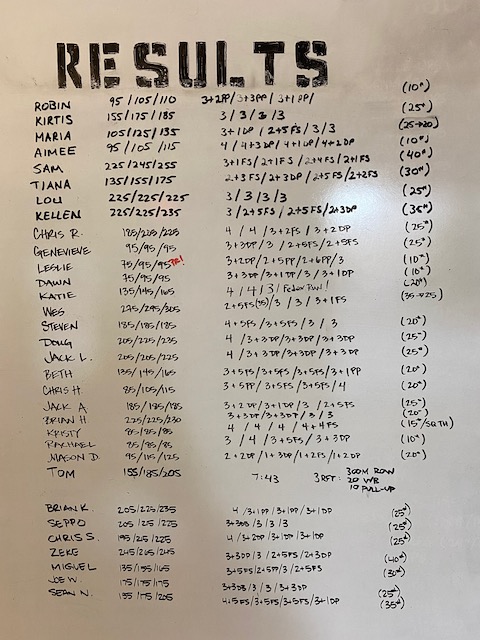 RESULTS
ROBIN 95/105/110 3+2PP/3+3PP/3+1PP/ (10#)
KIRTIS 155/175/185 3/3/3/3 (25#)
MARIA 105/125/135 3+1DP/2+5FS/3/3 (25→20)
AIMEE 95/105/115 4/4+3DP/4+1DP/4+2DP (10#)
SAM 225/245/255 3+1FS/2+1FS/2+4FS/1FS (40#)
TIANA 135/155/175 2+3FS/2+3DP/2+5FS/2+2FS (30#)
LOU 225/225/225 3/3/3/3 (25#)
KELLEN 225/225/235 3/2+5FS/2+5FS/2+3DP (35#)
CHRIS R. 185/205/225 4/4/3+2FS/3+2DP (25#)
GENEVIEVE 95/95/95 3+3DP/3/2+5FS/2+5FS (25#)
LESLIE 75/95/95 PR! 3+2DP/2+5PP/2+6PP/3 (10#)
DAWN 75/95/95 3+3DP/3+1DP/3/3+1DP (10#)
KATIE 135/145/165 4/4/3/ FedEx Run! (20#)
WES 275/295/305 2+5FS(35)/3/3/3+1FS (35→25)
STEVEN 185/185/185 4+5FS/3+5FS/3/3 (20#)
DOUG 205/225/235 4/3+3DP/3+3DP/3+3DP (25#)
JACK L. 205/205/225 4/3+3DP/3+3DP/3+3DP (25#)
BETH 135/145/165 3+5FS/3+5FS/3+5FS/3+1PP (20#)
CHRIS H. 85/105/115 3+5PP/3+5FS/3+5FS/4 (20#)
JACK A 185/195/185 3+2DP/3+1DP/3/2+5FS (25#)
BRIAN H. 225/225/230 3+3DP/3+3DP/3/3 (20#)
KRISTY 85/85/85 4/4/4/4+4FS (15#/SQTH)
RACHAEL 75/85/85 3/4/3+5FS/3+3DP (10#)
MASON D. 95/115/125 2+2DP/1+3DP/1+2FS/1+2DP (20#)
TOM 155/185/205 7:43 3RFT: 300M ROW
20 WB
10 PULL-UP
BRIAN K. 205/225/235 4/3+1PP/3+1PP/3+1DP (25#)
SEPPO 205/225/225 3+3DB/3/3/3 (25#)
CHRIS S. 195/205/225 4/3+2DP/3+1DP/3+1DP (25#)
ZEKE 245/265/245 3+3DP/3/2+5FS/2+3DP (40#)
MIGUEL 135/155/165 3+5FS/2+5PP/3/2+5FS (30#)
JOE W. 175/175/175 3+3DB/3/3/3+3DP (25#)
SEAN N. 155/175/205 4+5FS/3+5FS/3+5FS/3+1DP (35#)